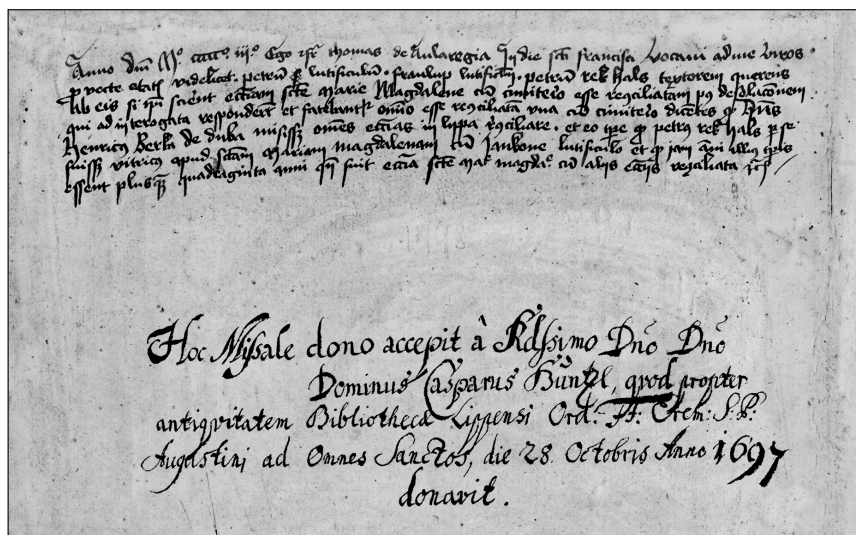 Anno dm̄ Mº ccccº iijº Ego thomas de Aularegia In die scti Francisci vocavi ad me viros
p̱vecte etatis videlicet petrū lutificulum petrū rek hals textorem querens
Ab eis si qn̄ scirent eccliam scte Marie Magdalene cū cimiterio esse reconciliatam desolucionem
qui ad interrogata responderūt et fatebantur omnīo esse reconciliatā una cū cimiterio dicētes
Henricus Berka de duba misisset omnes ecclias in lippa recōciliare et eo tpe petrus rek hals
fuisset vitricus apud sctam Mariam magdalenam cū Jankone lutificulo et jam illius tpis
essent plusq̄ quadraginta anni fuit ecclia scte magda cū aliis eccliis reconciliata
Hoc Missale dono accepit à Rdssimo Dnō Dnō
Dominus Casparus Hüntzl, quod propter
antiqvitatem Bibliothecæ Lippensi Ord: Erem: S: P:
Augustini ad Omnes Sanctos, die 28 Octobris Anno 1697
donavit.